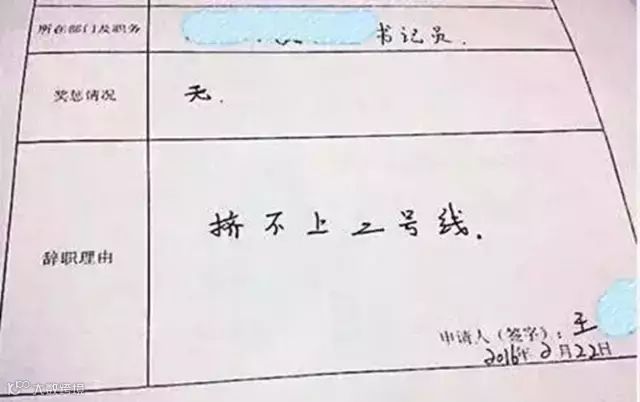 所在部门及职务
书记员.
奖惩情况
无.
辞职理由
挤不上二号线.
申请人（签字）：王
2016年2月22日
大数跨境